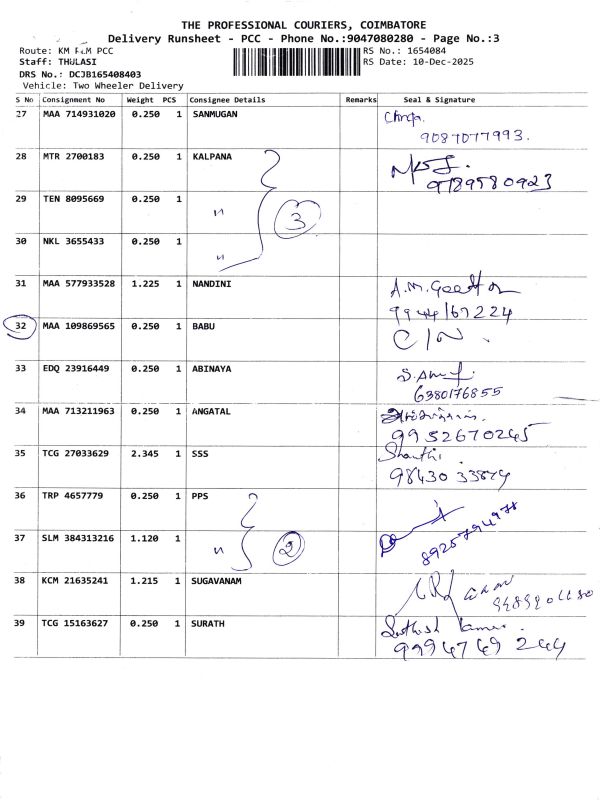 THE PROFESSIONAL COURIERS, COIMBATORE
Delivery Runsheet - PCC - Phone No.:9047080280 - Page No.:3
Route: KM PCC
RS No.: 1654084
Staff: THULASI
RS Date: 10-Dec-2025
DRS No.: DCJB165408403
Vehicle: Two Wheeler Delivery
S No Consignment No Weight PCS Consignee Details Remarks Seal & Signature
27 MAA 714931020 0.250 1 SANMUGAN
9087077993.
28 MTR 2700183 0.250 1 KALPANA
9789580923
29 TEN 8095669 0.250 1 " 3
30 NKL 3655433 0.250 1 "
31 MAA 577933528 1.225 1 NANDINI A.M.
9944167224
32 MAA 109869565 0.250 1 BABU C/N.
33 EDQ 23916449 0.250 1 ABINAYA
6380176855
34 MAA 713211963 0.250 1 ANGATAL
9952670245
35 TCG 27033629 2.345 1 SSS Shanthi.
98430 33879
36 TRP 4657779 0.250 1 PPS
37 SLM 384313216 1.120 1 " 2
38 KCM 21635241 1.215 1 SUGAVANAM
39 TCG 15163627 0.250 1 SURATH
9994749 244